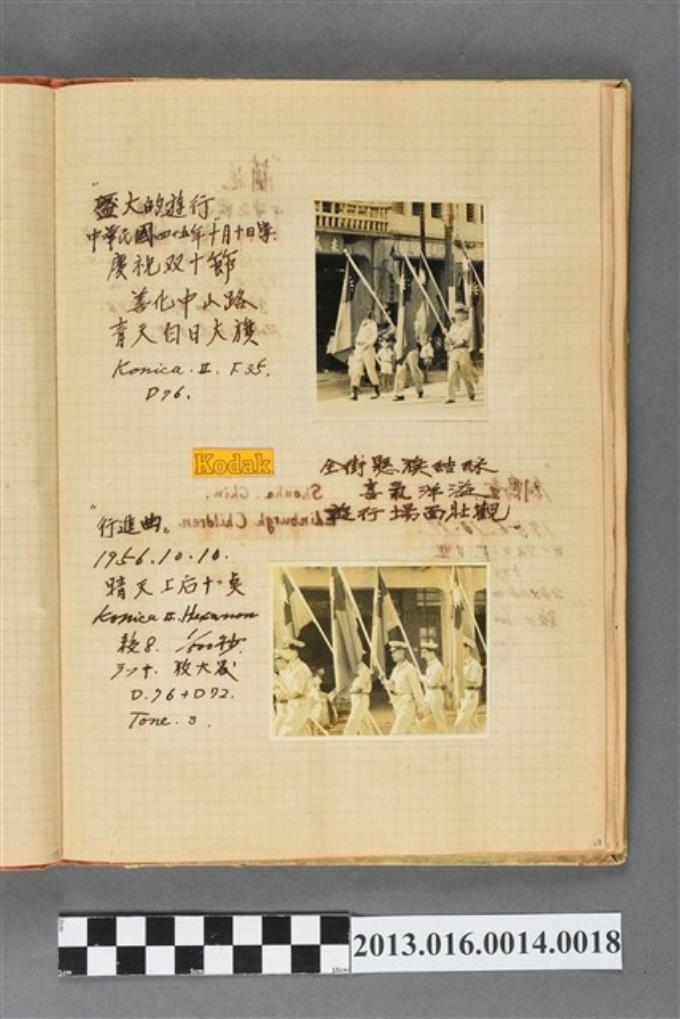 "盛大的遊行"
中華民國四十五年十月十日攝:
慶祝双十節
善化中山路
青天白日大旗
Konica. II. F 35.
D 76.
Kodak
全街懸旗结綵
喜氣洋溢
遊行場面壯觀
"行進曲"
1956.10.10.
晴天 上后十点
Konica II. Hexanon
絞 8. 1/500秒
ラッキ. 放大器
D. 76 + D72.
Tone. 3.
Shouha Chin.
Edinburgh Children.
2013.016.0014.0018